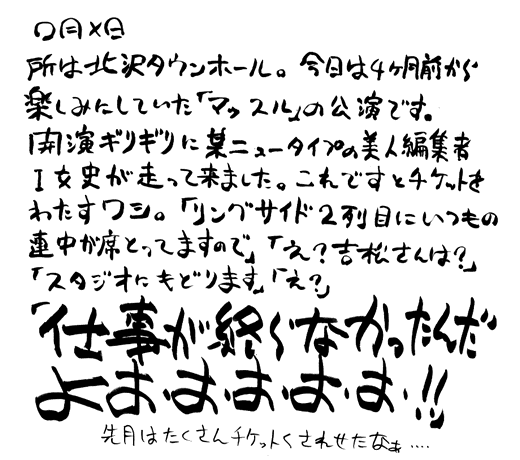 ○月×日
所は北沢タウンホール。今日は4ヶ月前から
楽しみにしていた「マッスル」の公演です。
開演ギリギリに某ニュータイプの美人編集者
I女史が走って来ました。これですとチケットを
わたすワシ。「リングサイド2列目にいつもの
連中が席とってますので」「え?吉松さんは?」
「スタジオにもどります」「え?」
「仕事が終らなかったんだ
よおおおおお!!
先月はたくさんチケットくさらせたなぁ‥‥